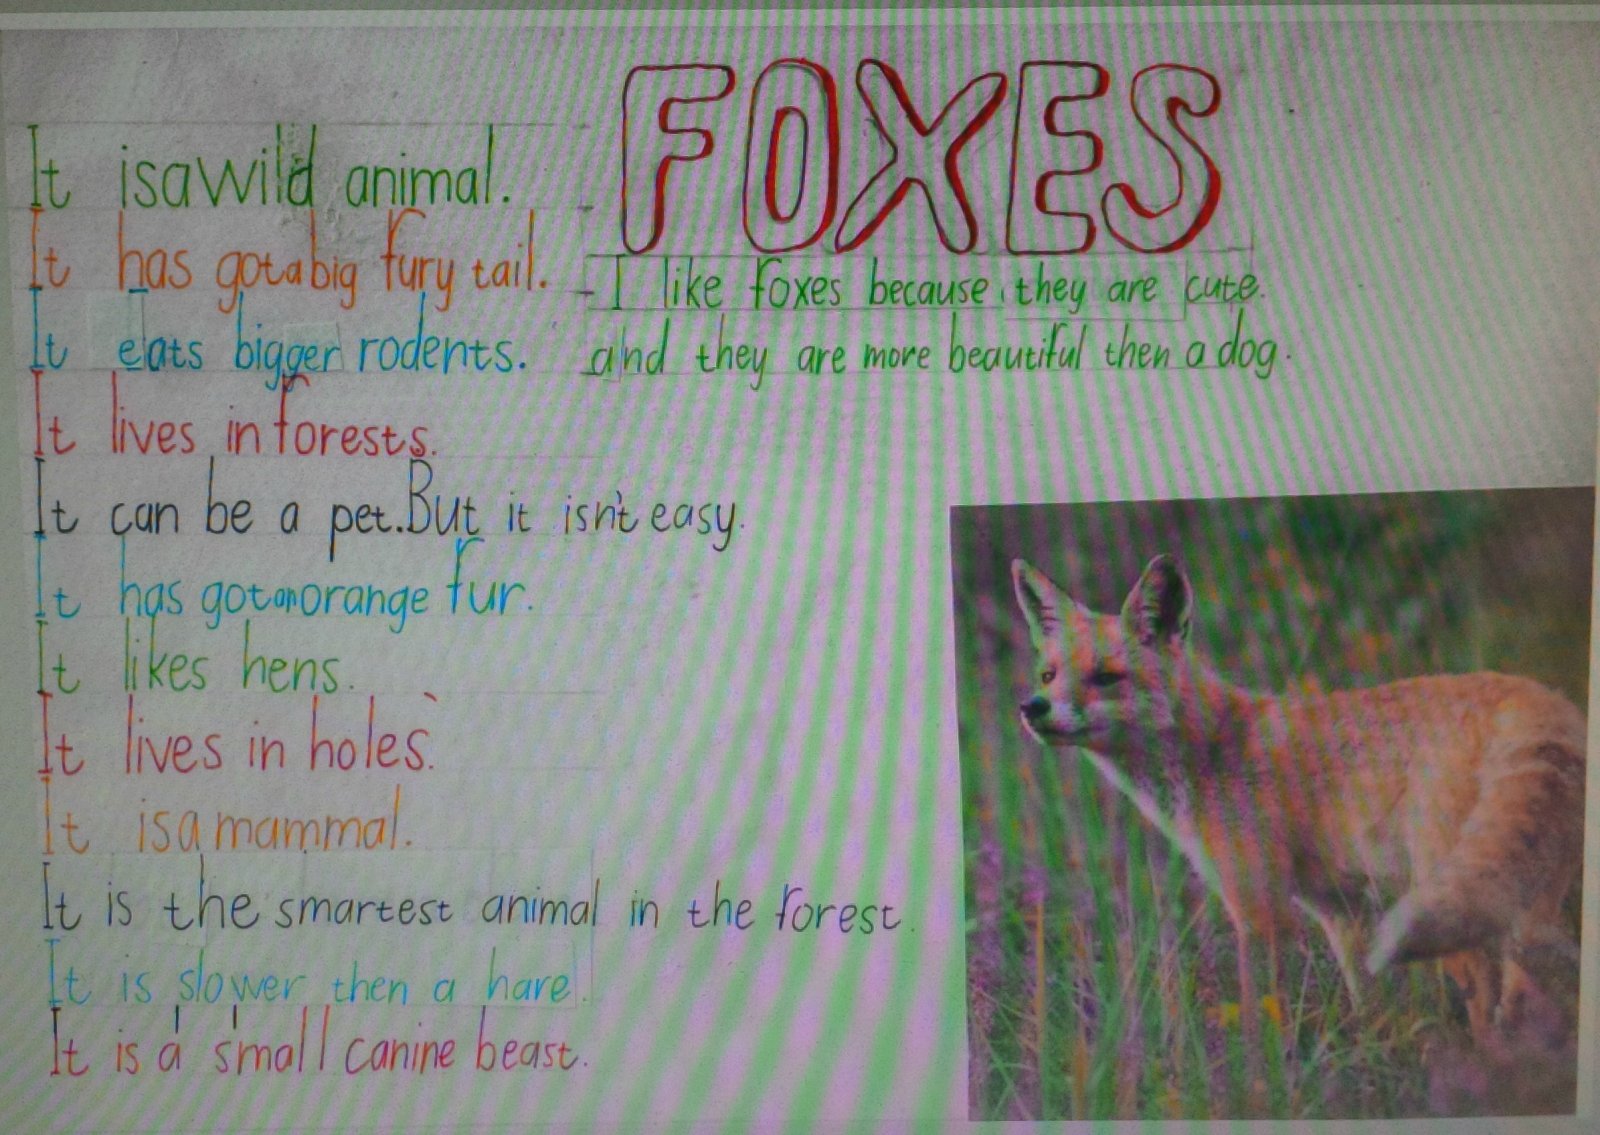 FOXES
It is a wild animal.
It has got a big fury tail.
It eats bigger rodents.
It lives in forests.
It can be a pet. But it isn't easy.
It has got an orange fur.
It likes hens.
It lives in holes.
It is a mammal.
It is the smartest animal in the forest.
It is slower then a hare.
It is a small canine beast.
- I like foxes because they are cute.
and they are more beautiful then a dog.